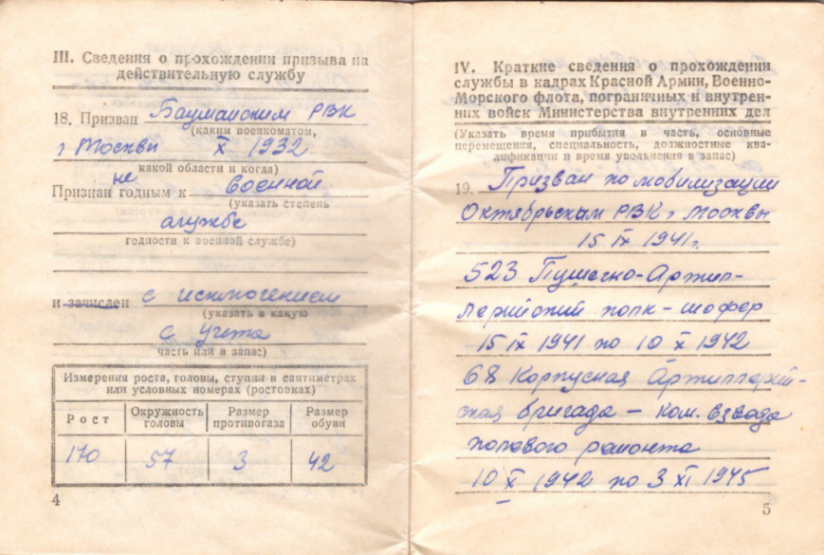 III. Сведения о прохождении призыва на
действительную службу
18. Призван Бауманским РВК
(каким военкоматом,
г Москвы X 1932
какой области и когда)
не
Признан годным к военной
(указать степень
службе
годности к военной службе)
и зачислен с исключением
(указать в какую
с учета
часть или в запас)
Измерения роста, головы, ступни в сантиметрах
или условных номерах (ростовках)
Рост Окружность головы Размер противогаза Размер обуви
170 57 3 42
4
IV. Краткие сведения о прохождении
службы в кадрах Красной Армии, Военно-
Морского флота, пограничных и внутрен-
них войск Министерства внутренних дел
(Указать время прибытия в часть, основные
перемещения, специальность, должностные ква-
лификации и время увольнения в запас)
19. Призван по мобилизации
Октябрьским РВК г Москвы
15 IX 1941г.
523 Пушечно-Артил-
лерийский полк - шофер
15 IX 1941 по 10 X 1942
68 Корпусная Артиллерий-
ская бригада - ком. взвода
полевого ремонта
10 X 1942 по 3 XI 1945
5